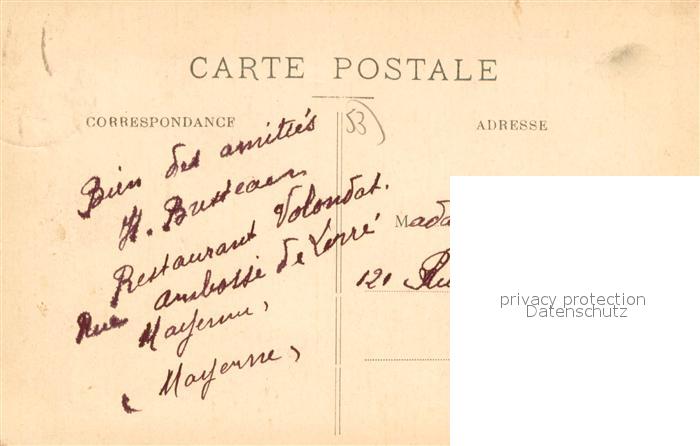 CARTE POSTALE
CORRESPONDANCE
53
ADRESSE
Bien des amitiés
H.
Restaurant Volondat.
Rue Ambroise de Loré
Mayenne,
(Mayenne)
Mada
121 Ru
privacy protection
Datenschutz